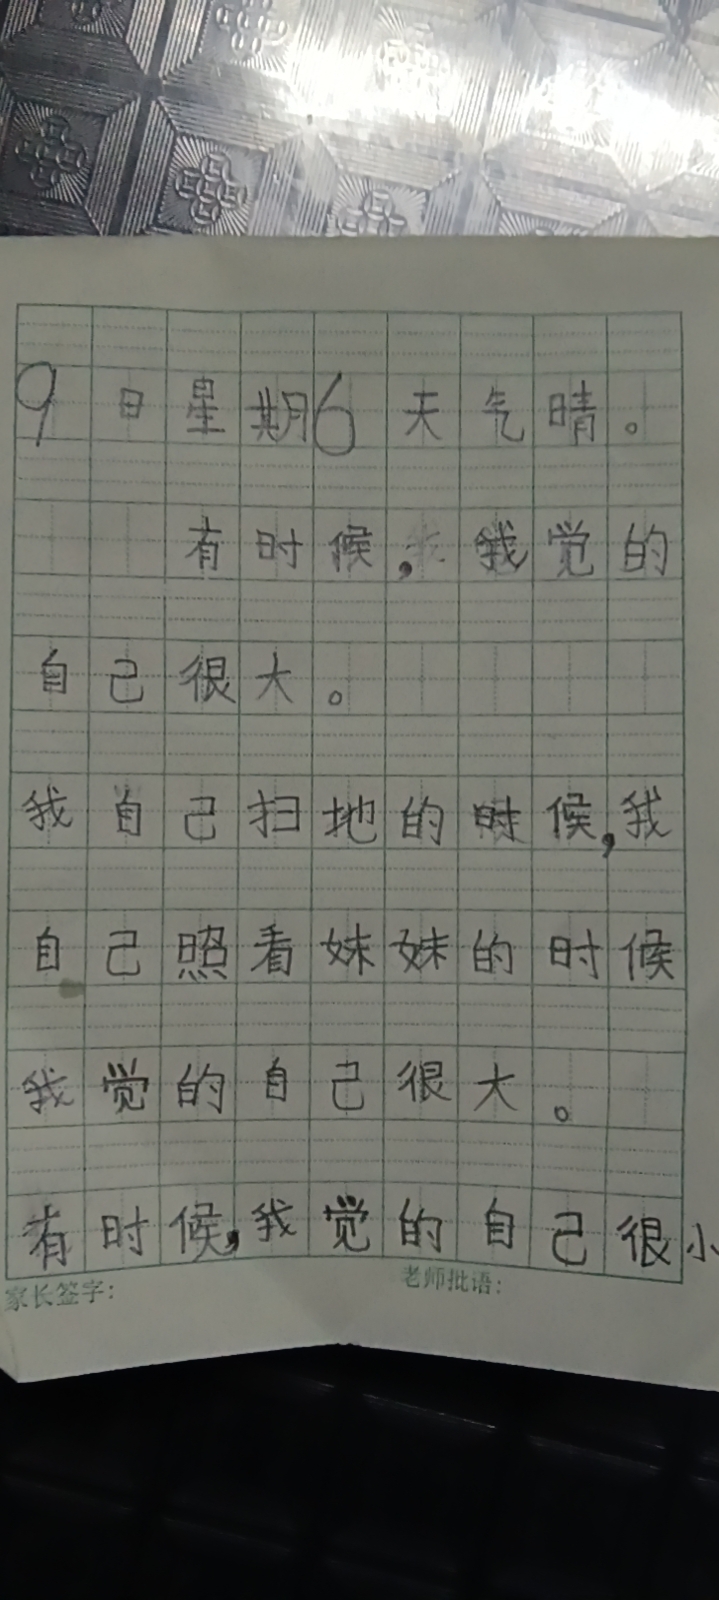 9日星期6天气晴。
有时候,我觉的
自己很大。
我自己扫地的时候,我
自己照看妹妹的时候
我觉的自己很大。
有时候,我觉的自己很小
家长签字: 老师批语: